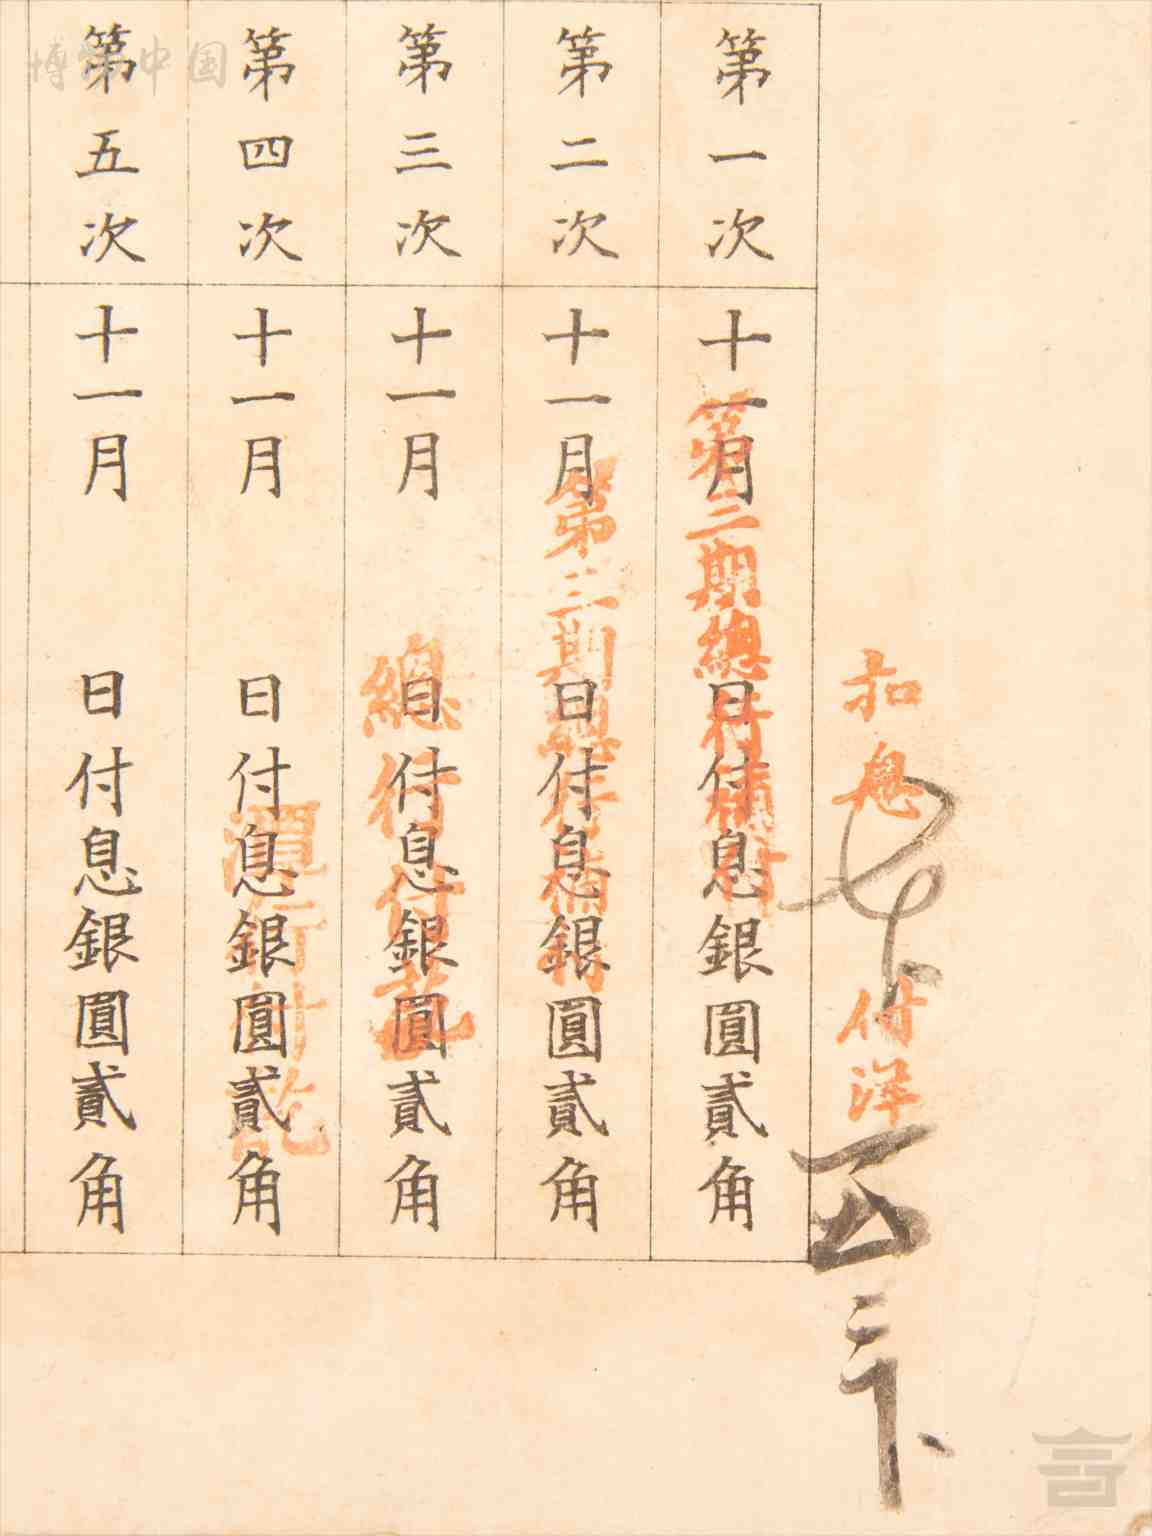 扣息
付洋
第一次
十一月 日付息銀圓貳角
第三期總行補付
第二次
十一月 日付息銀圓貳角
第二期總行補付
第三次
十一月 日付息銀圓貳角
總行付訖
第四次
十一月 日付息銀圓貳角
潭行付訖
第五次
十一月 日付息銀圓貳角
中国